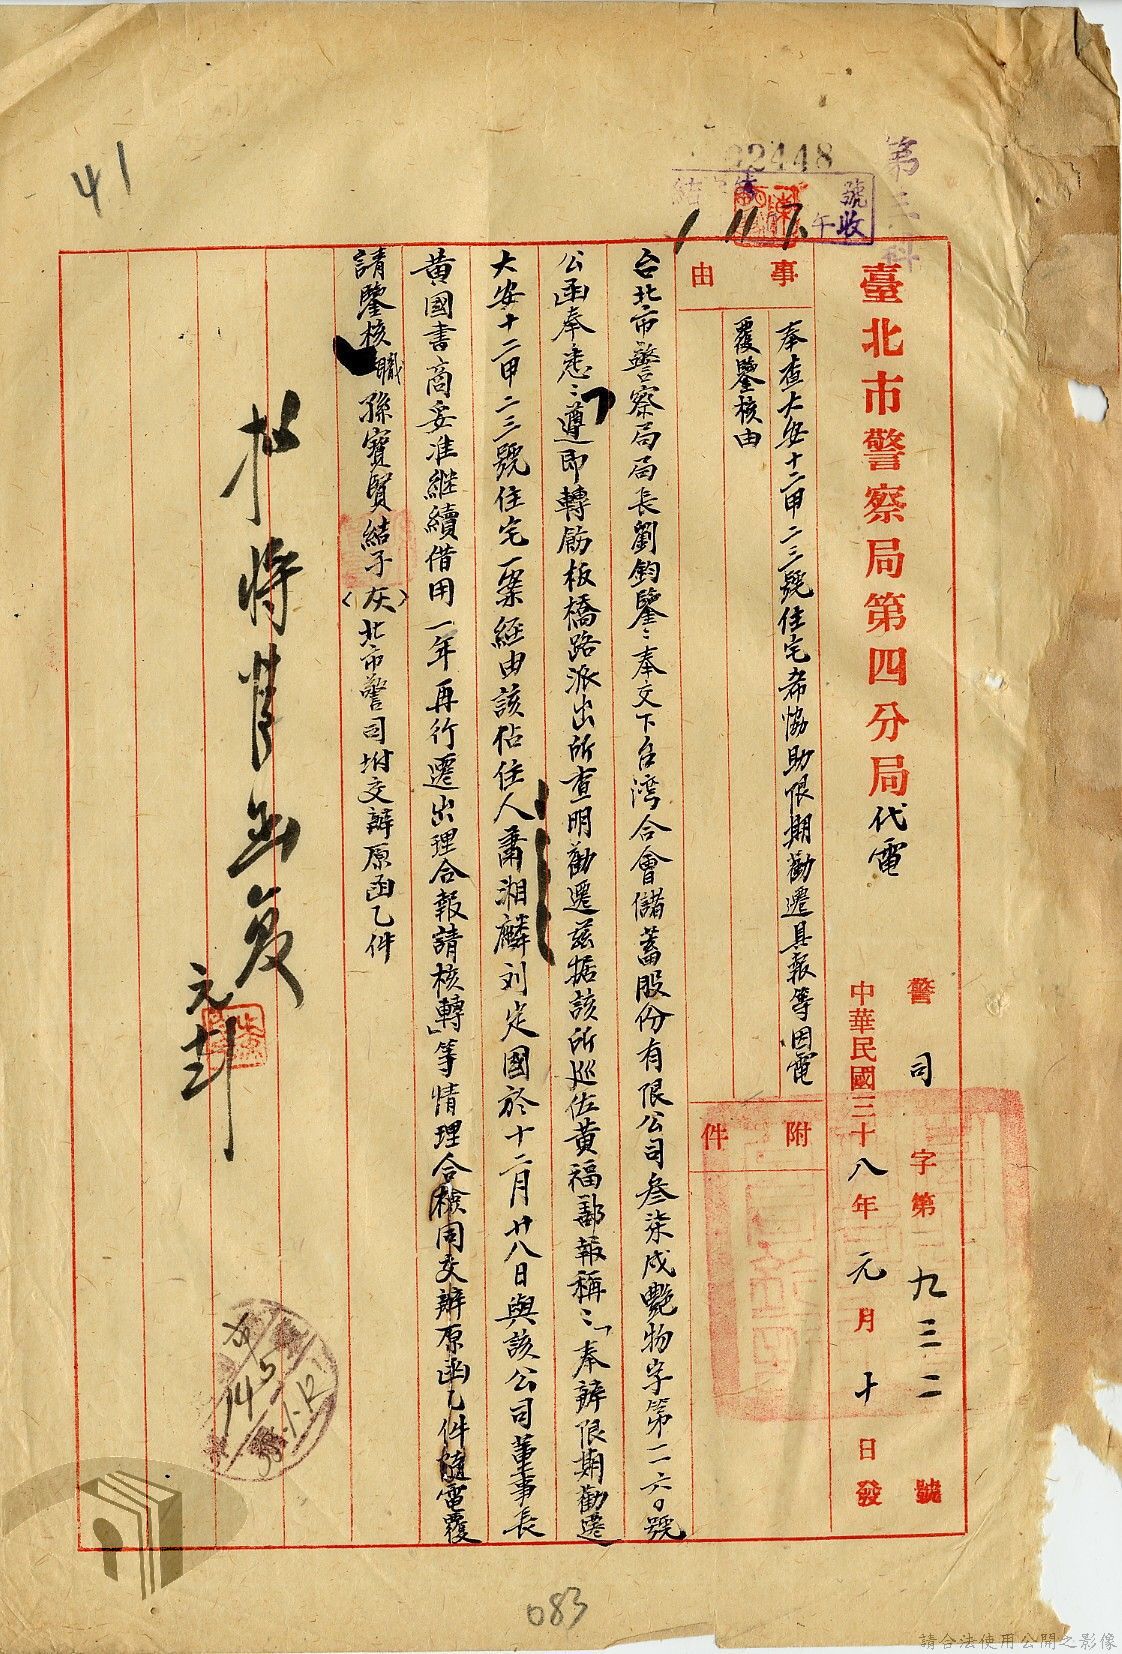 41
2448
第三科
號收
午
臺北市警察局第四分局代電
警司字第一九三二號
中華民國三十八年元月十日發
事由
奉查大安十二甲二三號住宅希協助限期勸遷具報等因電
覆鑒核由
附件
台北市警察局局長劉鈞鑒:奉交下台灣合會儲蓄股份有限公司叁柒戌艷物字第一一六〇號
公函奉悉:遵即轉飭板橋路派出所查明勸遷茲据該所巡佐黃福鄯報稱:「奉辦限期勸遷
大安十二甲二三號住宅一案經由該佔住人蕭湘麟刘定國於十二月廿八日與該公司董事長
黃國書商妥准継續借用一年再行遷出理合報請核轉」等情理合檢同交辦原函乙件隨電覆
請鑒核職孫寳賢結子(灰)北市警司坿交辦原函乙件
元
083
請合法使用公開之影像